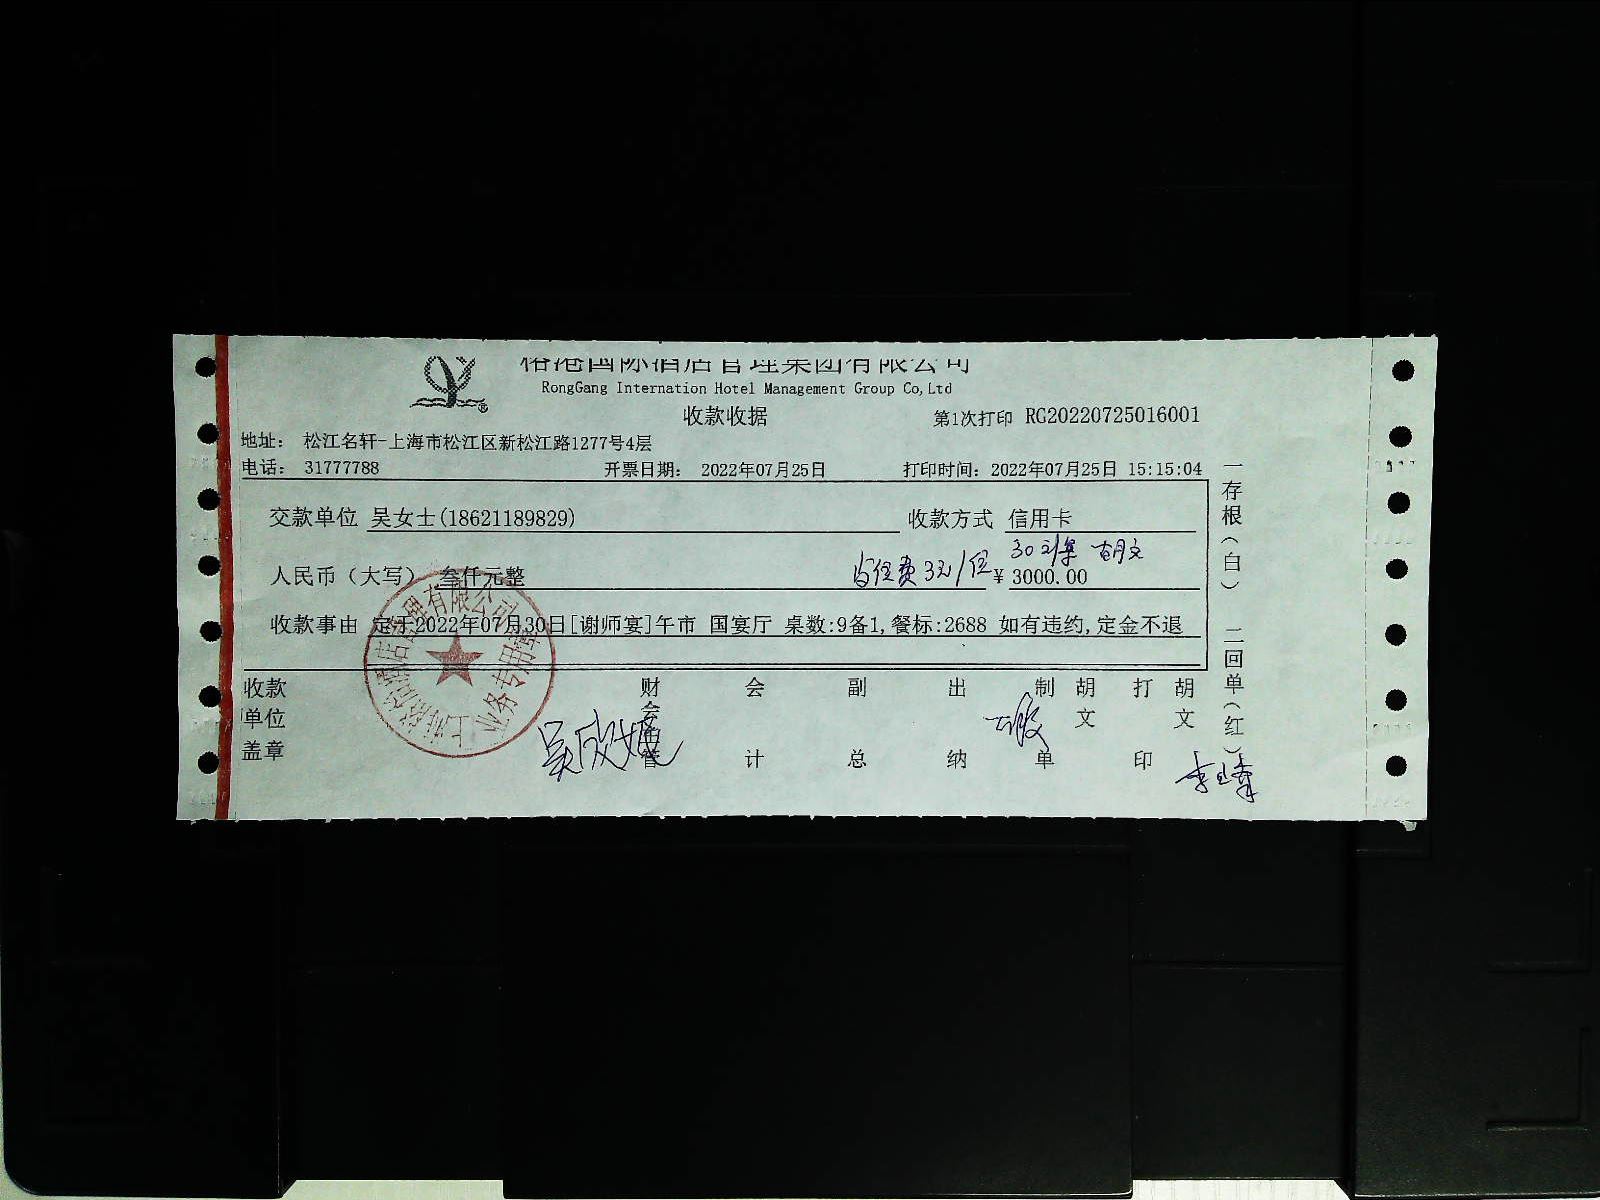 榕港国际酒店管理集团有限公司
RongGang Internation Hotel Management Group Co,Ltd
收款收据
第1次打印 RG20220725016001
地址： 松江名轩-上海市松江区新松江路1277号4层
电话： 31777788 开票日期： 2022年07月25日 打印时间：2022年07月25日 15:15:04
交款单位 吴女士(18621189829) 收款方式 信用卡
人民币（大写） 叁仟元整 ¥ 3000.00
胡文
收款事由 定于2022年07月30日[谢师宴]午市 国宴厅 桌数:9备1,餐标:2688 如有违约,定金不退
收款单位盖章
财会主管
会计
副总
出纳
制单
胡文
打印
胡文
一存根（白） 二回单（红）
业务专用章